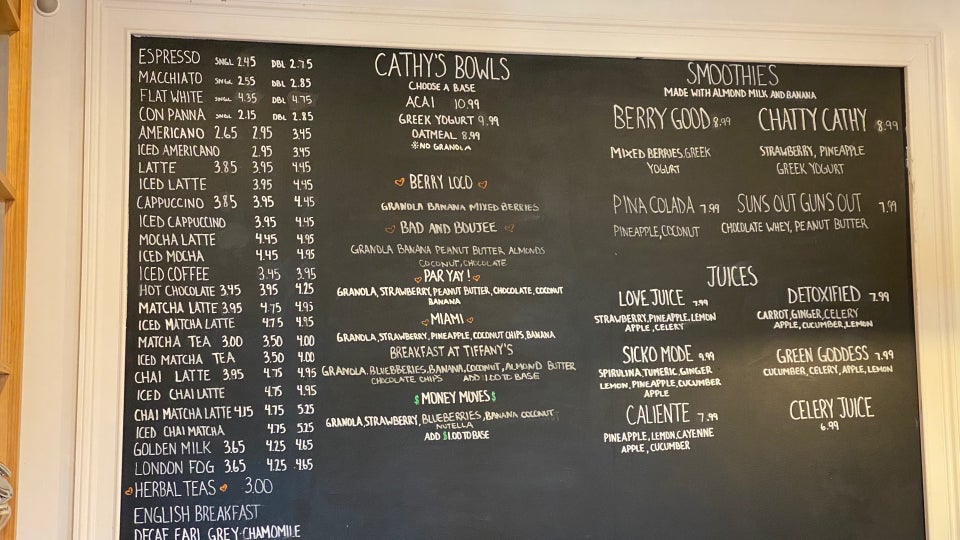 ESPRESSO SNGL 2.45 DBL 2.75
MACCHIATO SNGL 2.55 DBL 2.85
FLAT WHITE SNGL 4.35 DBL 4.75
CON PANNA SNGL 2.15 DBL 2.85
AMERICANO 2.65 2.95 3.45
ICED AMERICANO 2.95 3.45
LATTE 3.85 3.95 4.45
ICED LATTE 3.95 4.45
CAPPUCCINO 3.85 3.95 4.45
ICED CAPPUCCINO 3.95 4.45
MOCHA LATTE 4.45 4.95
ICED MOCHA 4.45 4.95
ICED COFFEE 3.45 3.95
HOT CHOCOLATE 3.45 3.95 4.25
MATCHA LATTE 3.95 4.75 4.95
ICED MATCHA LATTE 4.75 4.95
MATCHA TEA 3.00 3.50 4.00
ICED MATCHA TEA 3.50 4.00
CHAI LATTE 3.95 4.75 4.95
ICED CHAI LATTE 4.75 4.95
CHAI MATCHA LATTE 4.15 4.75 5.25
ICED CHAI MATCHA 4.75 5.25
GOLDEN MILK 3.65 4.25 4.65
LONDON FOG 3.65 4.25 4.65
HERBAL TEAS 3.00
ENGLISH BREAKFAST
DECAF EARL GREY·CHAMOMILE
CATHY'S BOWLS
CHOOSE A BASE
ACAI 10.99
GREEK YOGURT 9.99
OATMEAL 8.99
*NO GRANOLA
BERRY LOCO
GRANOLA BANANA MIXED BERRIES
BAD AND BOUJEE
GRANOLA BANANA PEANUT BUTTER ALMONDS
COCONUT, CHOCOLATE
PAR YAY!
GRANOLA, STRAWBERRY, PEANUT BUTTER, CHOCOLATE, COCONUT
BANANA
MIAMI
GRANOLA, STRAWBERRY, PINEAPPLE, COCONUT CHIPS, BANANA
BREAKFAST AT TIFFANY'S
GRANOLA, BLUEBBERIES, BANANA, COCONUT, ALMOND BUTTER
CHOCOLATE CHIPS ADD 1.00 TO BASE
$MONEY MOVES$
GRANOLA, STRAWBERRY, BLUEBERRIES, BANANA COCONUT,
NUTELLA
ADD $1.00 TO BASE
SMOOTHIES
MADE WITH ALMOND MILK AND BANANA
BERRY GOOD 8.99
MIXED BERRIES, GREEK
YOGURT
CHATTY CATHY 8.99
STRAWBERRY, PINEAPPLE
GREEK YOGURT
PINA COLADA 7.99
PINEAPPLE, COCONUT
SUNS OUT GUNS OUT 7.99
CHOCOLATE WHEY, PEANUT BUTTER
JUICES
LOVE JUICE 7.99
STRAWBERRY, PINEAPPLE, LEMON
APPLE, CELERY
DETOXIFIED 7.99
CARROT, GINGER, CELERY
APPLE, CUCUMBER, LEMON
SICKO MODE 9.99
SPIRULINA, TUMERIC, GINGER
LEMON, PINEAPPLE, CUCUMBER
APPLE
GREEN GODDESS 7.99
CUCUMBER, CELERY, APPLE, LEMON
CALIENTE 7.99
PINEAPPLE, LEMON, CAYENNE
APPLE, CUCUMBER
CELERY JUICE
6.99